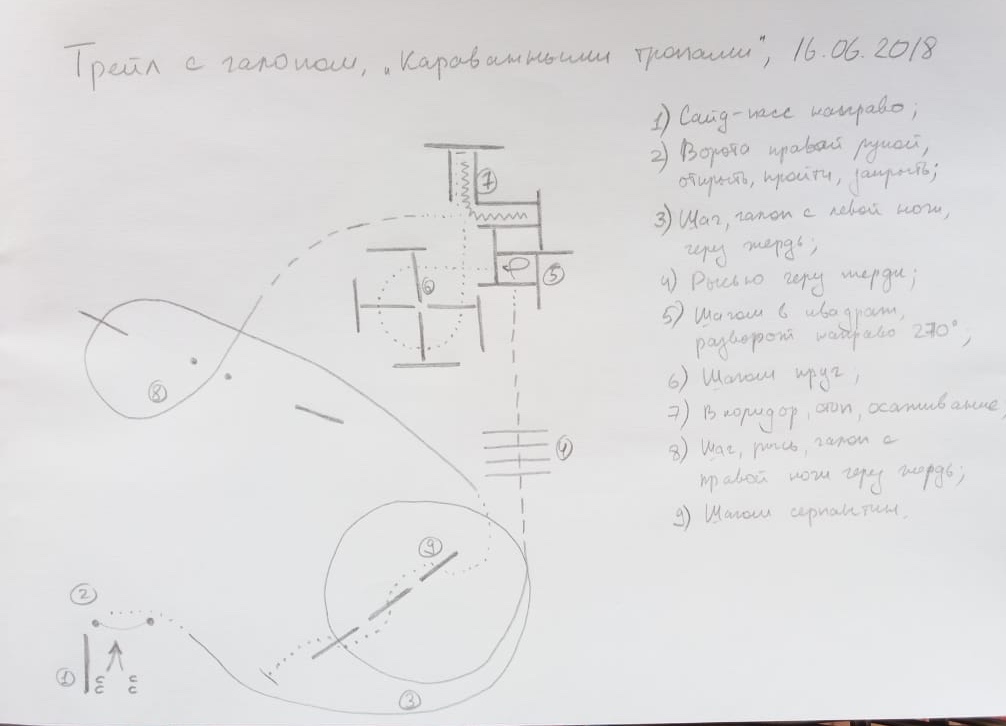 Трейл с галопом, „Караванными тропами", 16.06.2018
1) Сайд-пасс направо;
2) Ворота правой рукой,
открыть, пройти, закрыть;
3) Шаг, галоп с левой ноги,
через жердь;
4) Рысью через жерди;
5) Шагом в квадрат,
разворот направо 270°;
6) Шагом круг;
7) В коридор, стоп, осаживание
8) Шаг, рысь, галоп с
правой ноги через жердь;
9) Шагом серпантин.
7
6
5
8
4
9
2
1
3